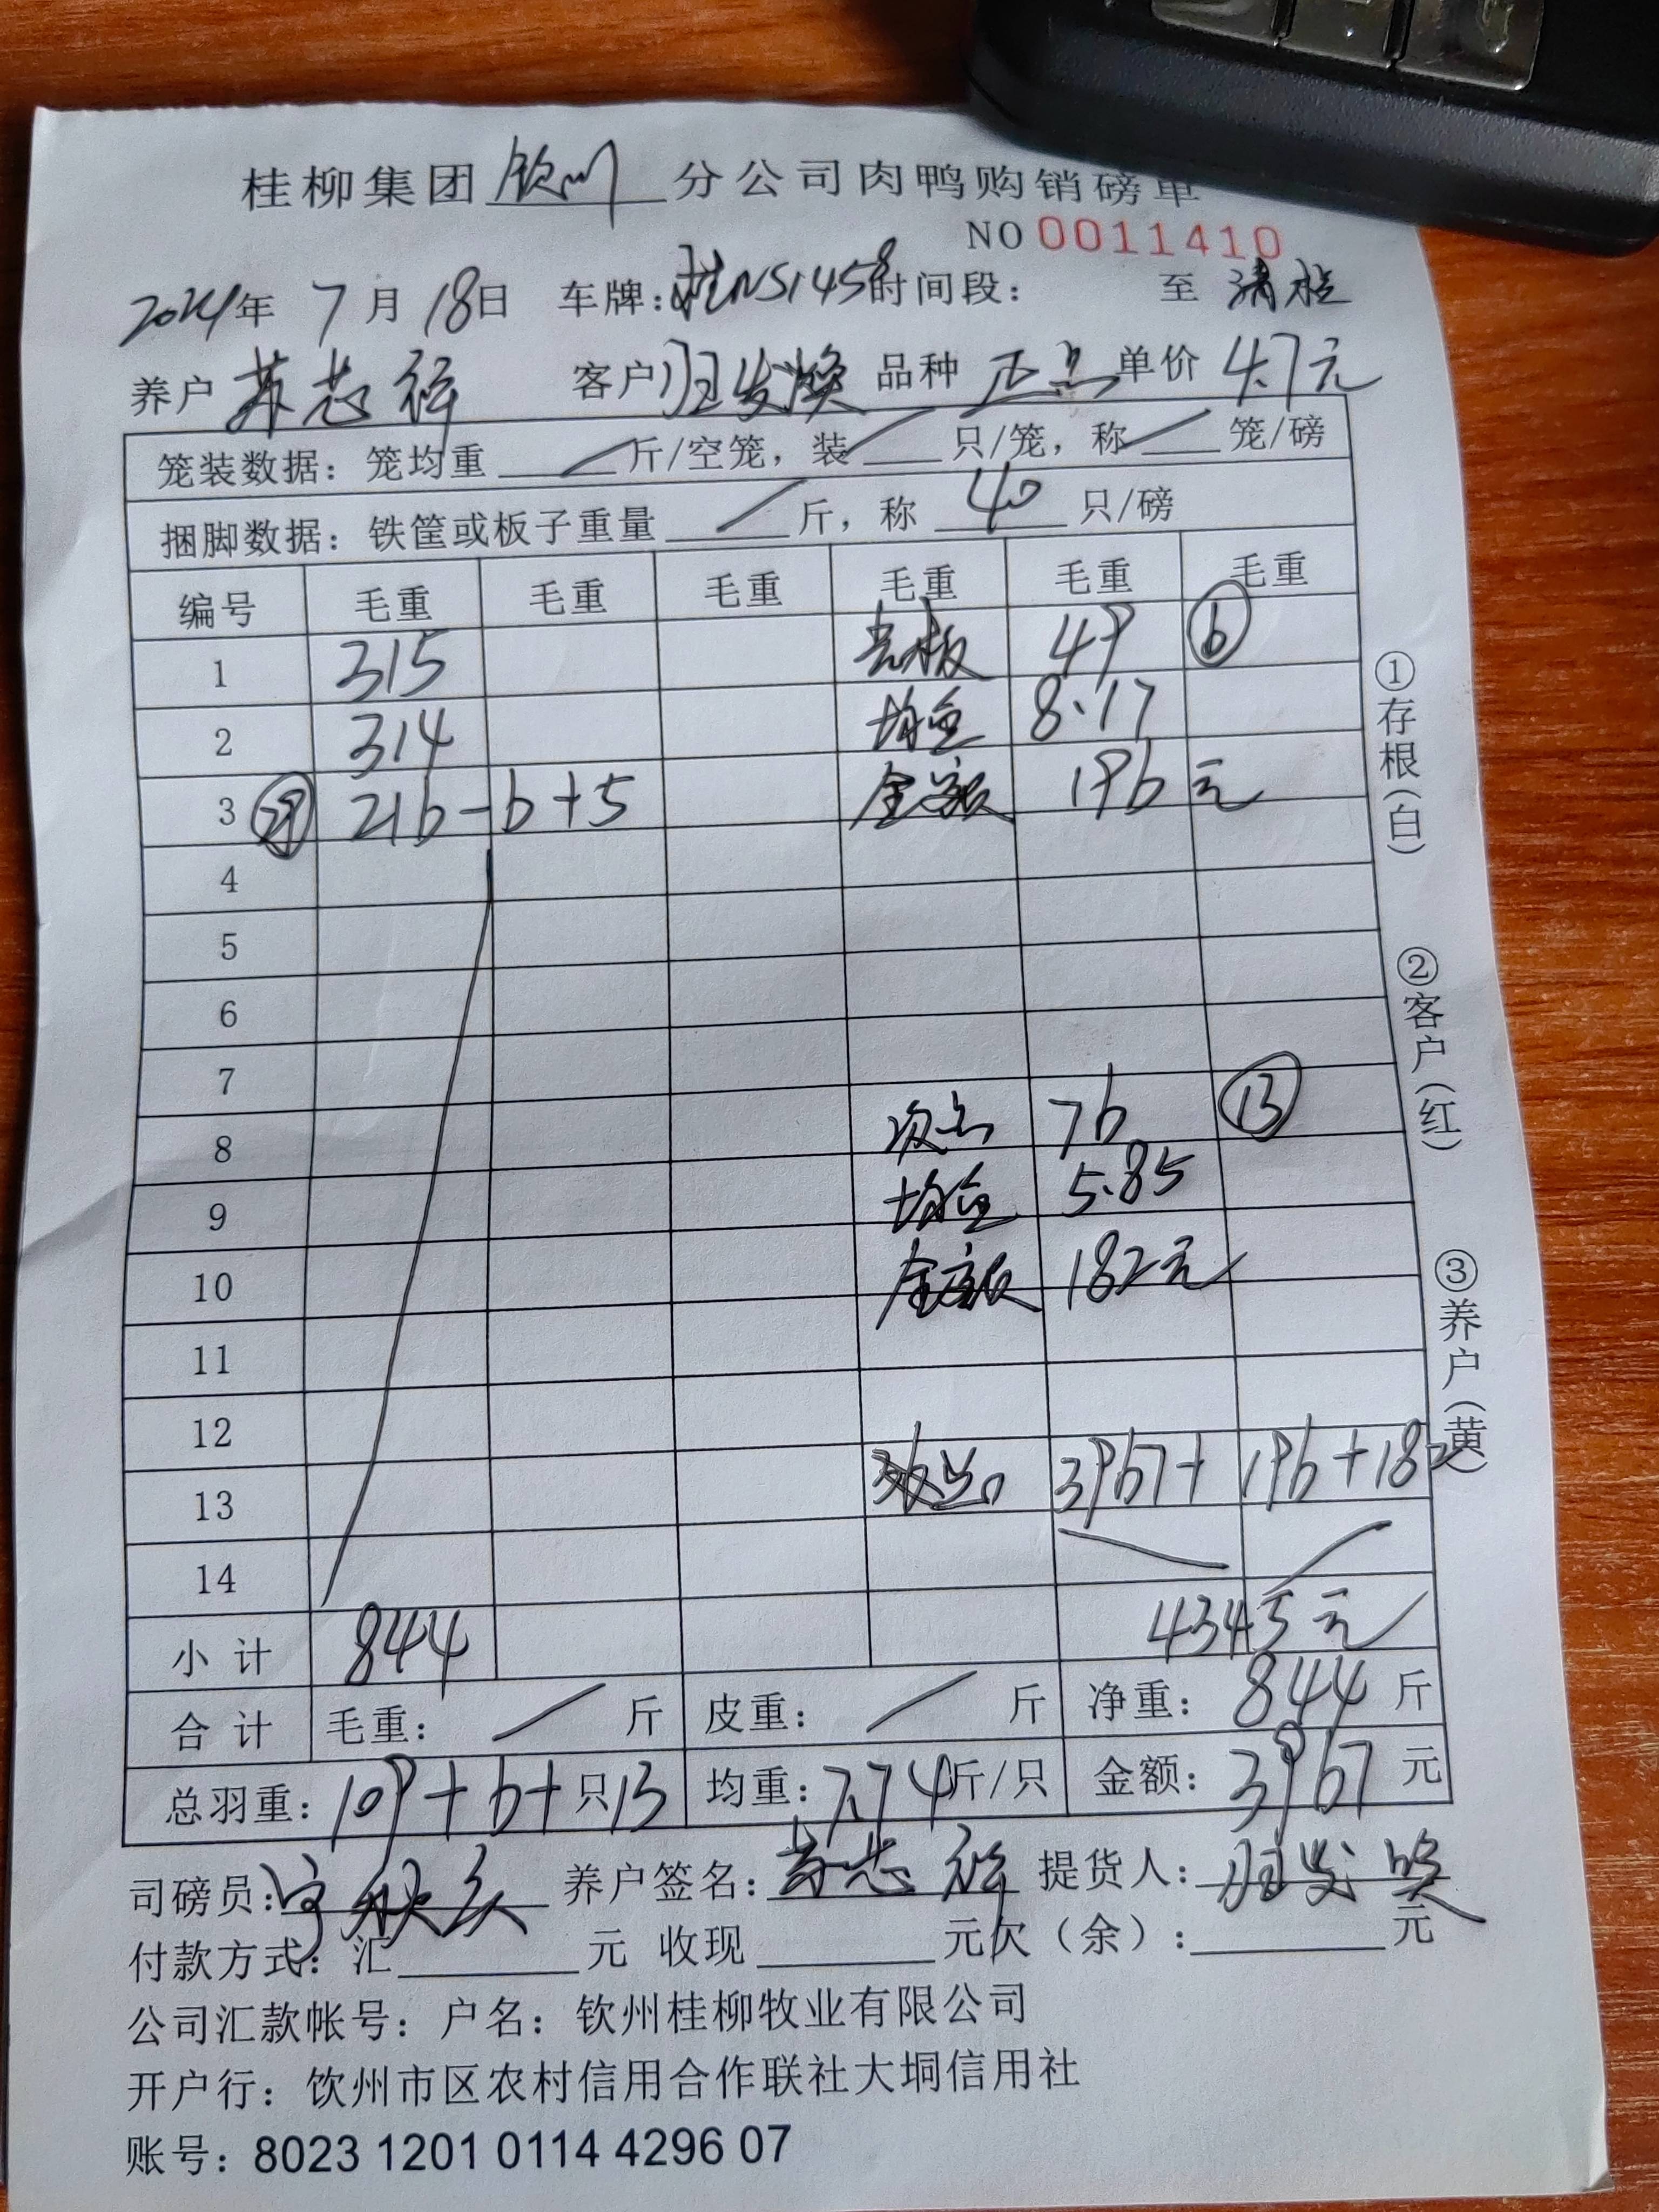 桂柳集团 钦州 分公司肉鸭购销磅单
NO 0011410
2024年 7月 18日 车牌:桂NS1458 时间段: 至 清栏
养户 苏志祥 客户 发焕 品种 正品 单价 4.7元
笼装数据: 笼均重 / 斤/空笼, 装 / 只/笼, 称 / 笼/磅
捆脚数据: 铁筐或板子重量 / 斤, 称 40 只/磅
编号 毛重 毛重 毛重 毛重 毛重 毛重
1 315 光板 49 ⑥
2 314 均重 8.17
3 ㉙ 216-6+5 金额 196元
4
5
6
7
8 次品 76 ⑬
9 均重 5.85
10 金额 182元
11
12
13 3967+196+182
14
小计 844 4345元
合计 毛重: / 斤 皮重: / 斤 净重: 844 斤
总羽重: 109+6+只13 均重: 7.74斤/只 金额: 3967 元
司磅员: 养户签名: 苏志祥 提货人:
付款方式: 汇 元 收现 元欠(余): 元
公司汇款帐号: 户名: 钦州桂柳牧业有限公司
开户行: 钦州市区农村信用合作联社大垌信用社
账号: 8023 1201 0114 4296 07
①存根(白)
②客户(红)
③养户(黄)